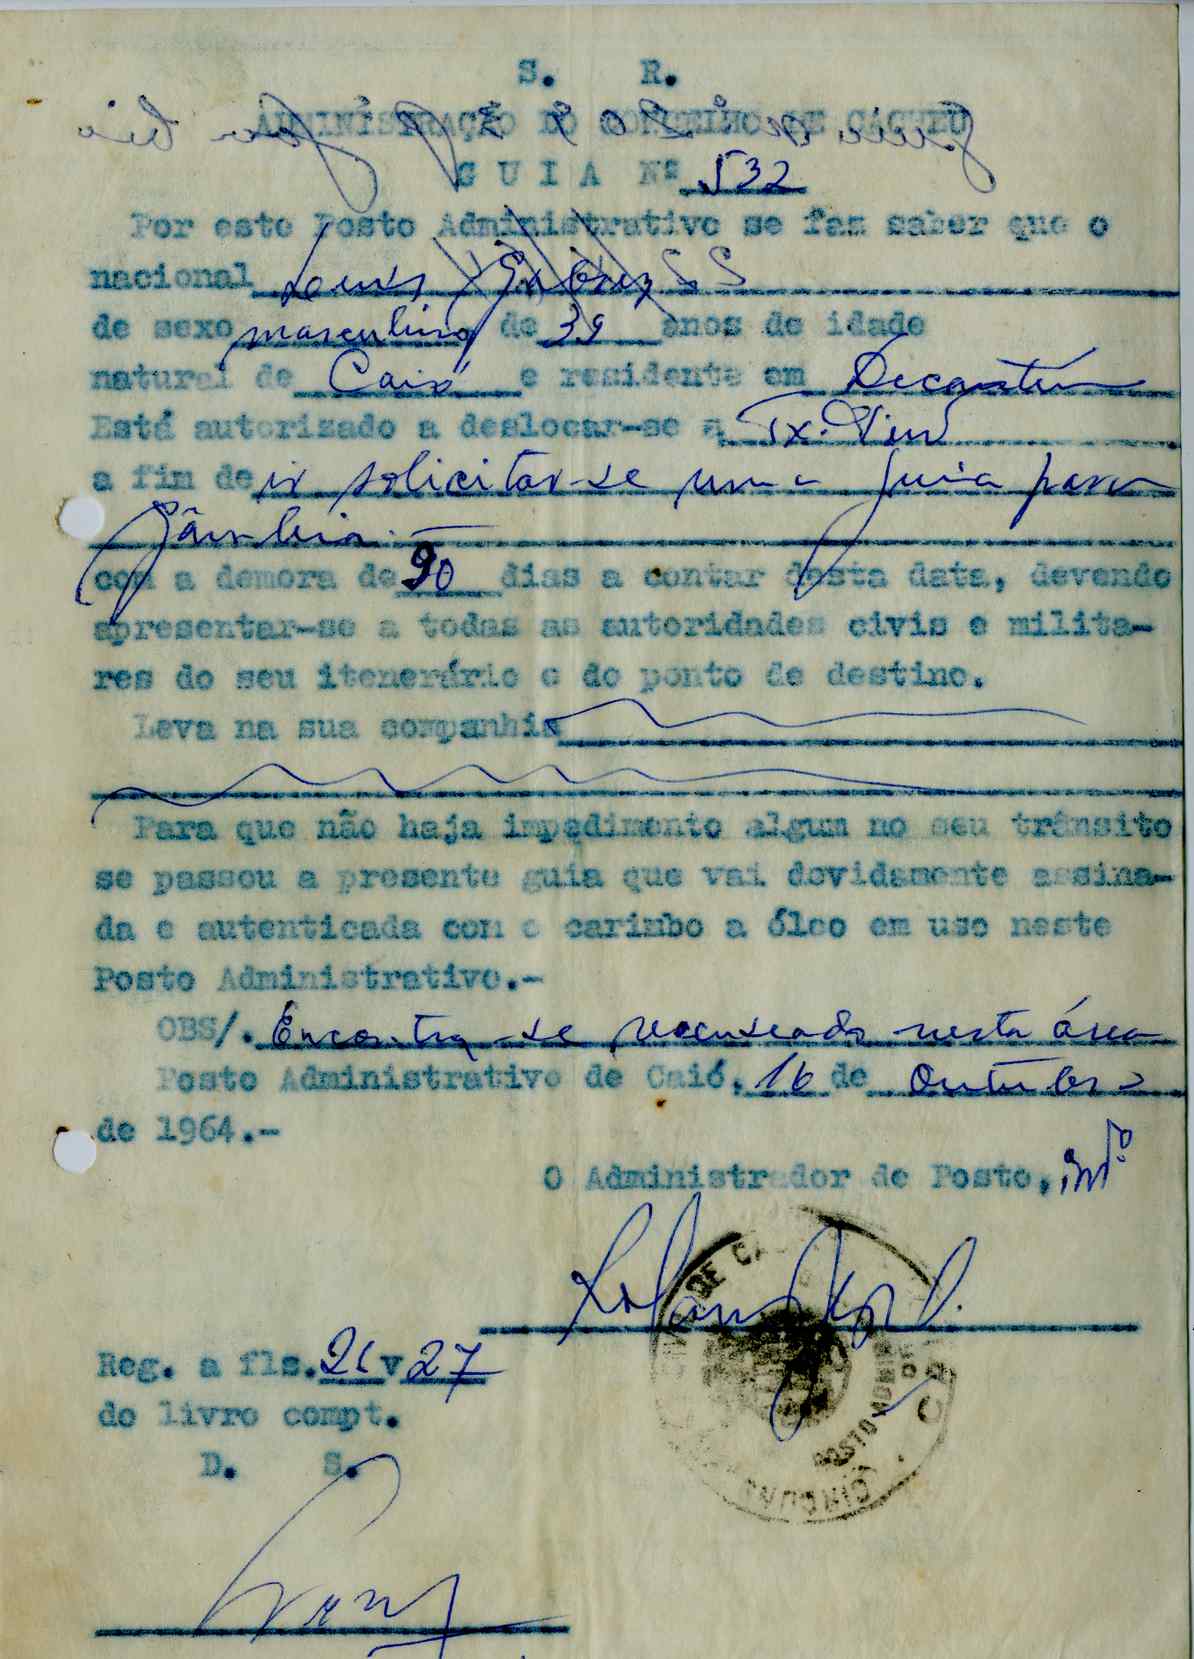 S. R.
ADMINISTRAÇÃO DO CONCELHO DE CACHEU
G U I A Nº 532
Por este Posto Administrativo se faz saber que o
nacional Louis
de sexo masculino de 39 anos de idade
natural de Caió e residente em
Está autorizado a deslocar-se a Tx. Pinº
a fim de ir solicitar-se uma guia para
Gâmbia.
com a demora de 90 dias a contar desta data, devendo
apresentar-se a todas as autoridades civis e milita-
res do seu itenerário e do ponto de destino.
Leva na sua companhia
Para que não haja impedimento algum no seu trânsito
se passou a presente guia que vai devidamente assina-
da e autenticada com o carimbo a óleo em uso neste
Posto Administrativo.-
OBS/. Encontra-se recenseado nesta área
Posto Administrativo de Caió, 16 de Outubro
de 1964.-
O Administrador de Posto, intº
Reg. a fls. 26 v 27
do livro compt.
D. S.